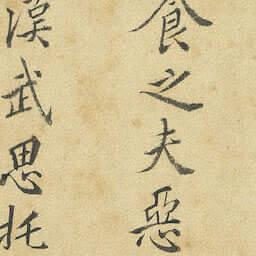 食之夫惡
漢武思托